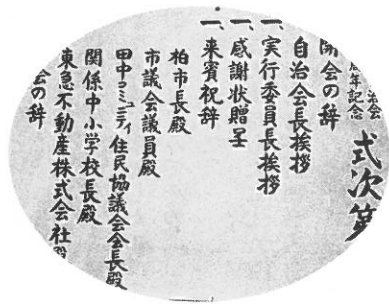 治会
周年記念 式次第
開会の辞
自治会長挨拶
一、実行委員長挨拶
一、感謝状贈呈
一、来賓祝辞
柏市長殿
市議会議員殿
田中コミュニティ住民協議会会長殿
関係中小学校長殿
東急不動産株式会社殿
会の辞